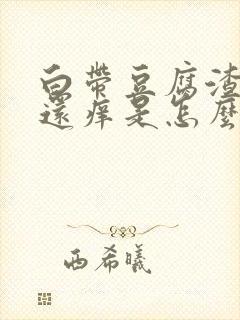 白带豆腐渣
還痒是怎麼
西希曦